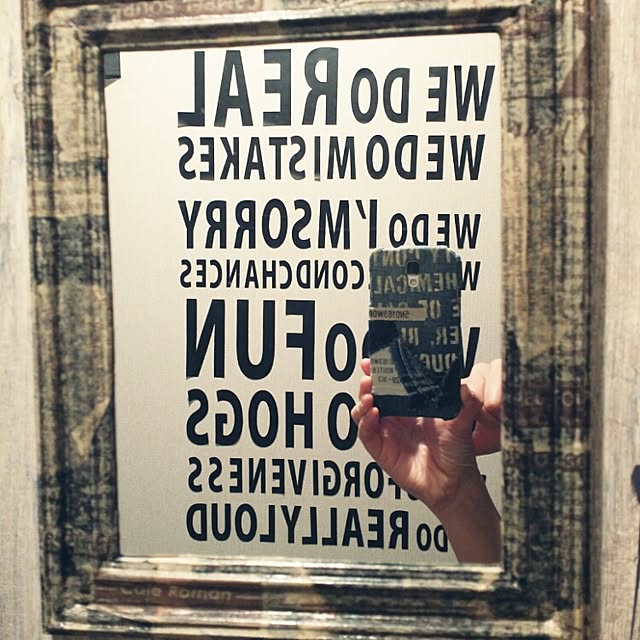 WE DO REAL
WE DO MISTAKES
WE DO I'M SORRY
CONDCHANCES
FUN
HOGS
FORGIVENESS
DO REALLY LOUD
Cafe Roman